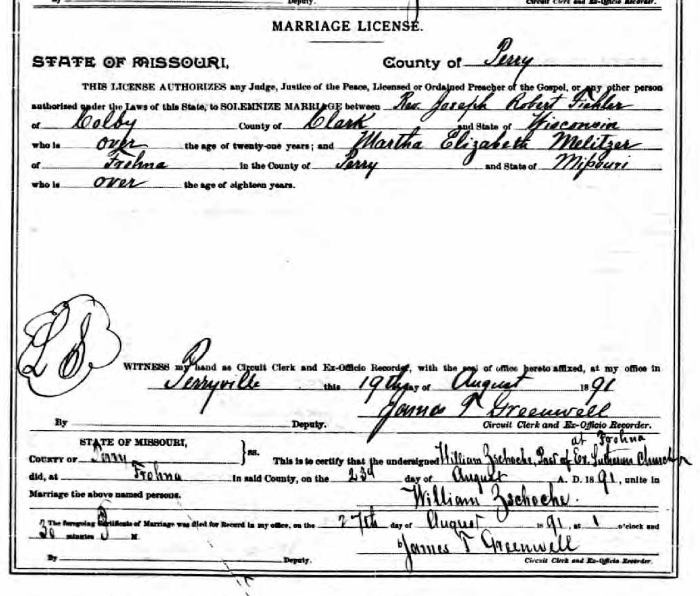 By Deputy. Circuit Clerk and Ex-Officio Recorder.
MARRIAGE LICENSE.
STATE OF MISSOURI, County of Perry
THIS LICENSE AUTHORIZES any Judge, Justice of the Peace, Licensed or Ordained Preacher of the Gospel, or any other person
authorized under the Laws of this State, to SOLEMNIZE MARRIAGE between Rev. Joseph Robert
of Colby County of Clark and State of Wisconsin
who is over the age of twenty-one years; and Martha Elizabeth Melitzer
of Frohna in the County of Perry and State of Missouri
who is over the age of eighteen years.
L S.
WITNESS my hand as Circuit Clerk and Ex-Officio Recorder, with the seal of office hereto affixed, at my office in
Perryville this 19th day of August 1891
James T Greenwell
By Deputy. Circuit Clerk and Ex-Officio Recorder.
STATE OF MISSOURI, at Frohna
COUNTY OF Perry } ss. This is to certify that the undersigned William Zschoche, Past of Ev. Lutheran Church
did, at Frohna in said County, on the 23d day of August A. D. 1891, unite in
Marriage the above named persons. William Zschoche.
The foregoing Certificate of Marriage was filed for Record in my office, on the 27th day of August 1891, at 1 o'clock and
30 minutes P M.
James T Greenwell
By Deputy. Circuit Clerk and Ex-Officio Recorder.